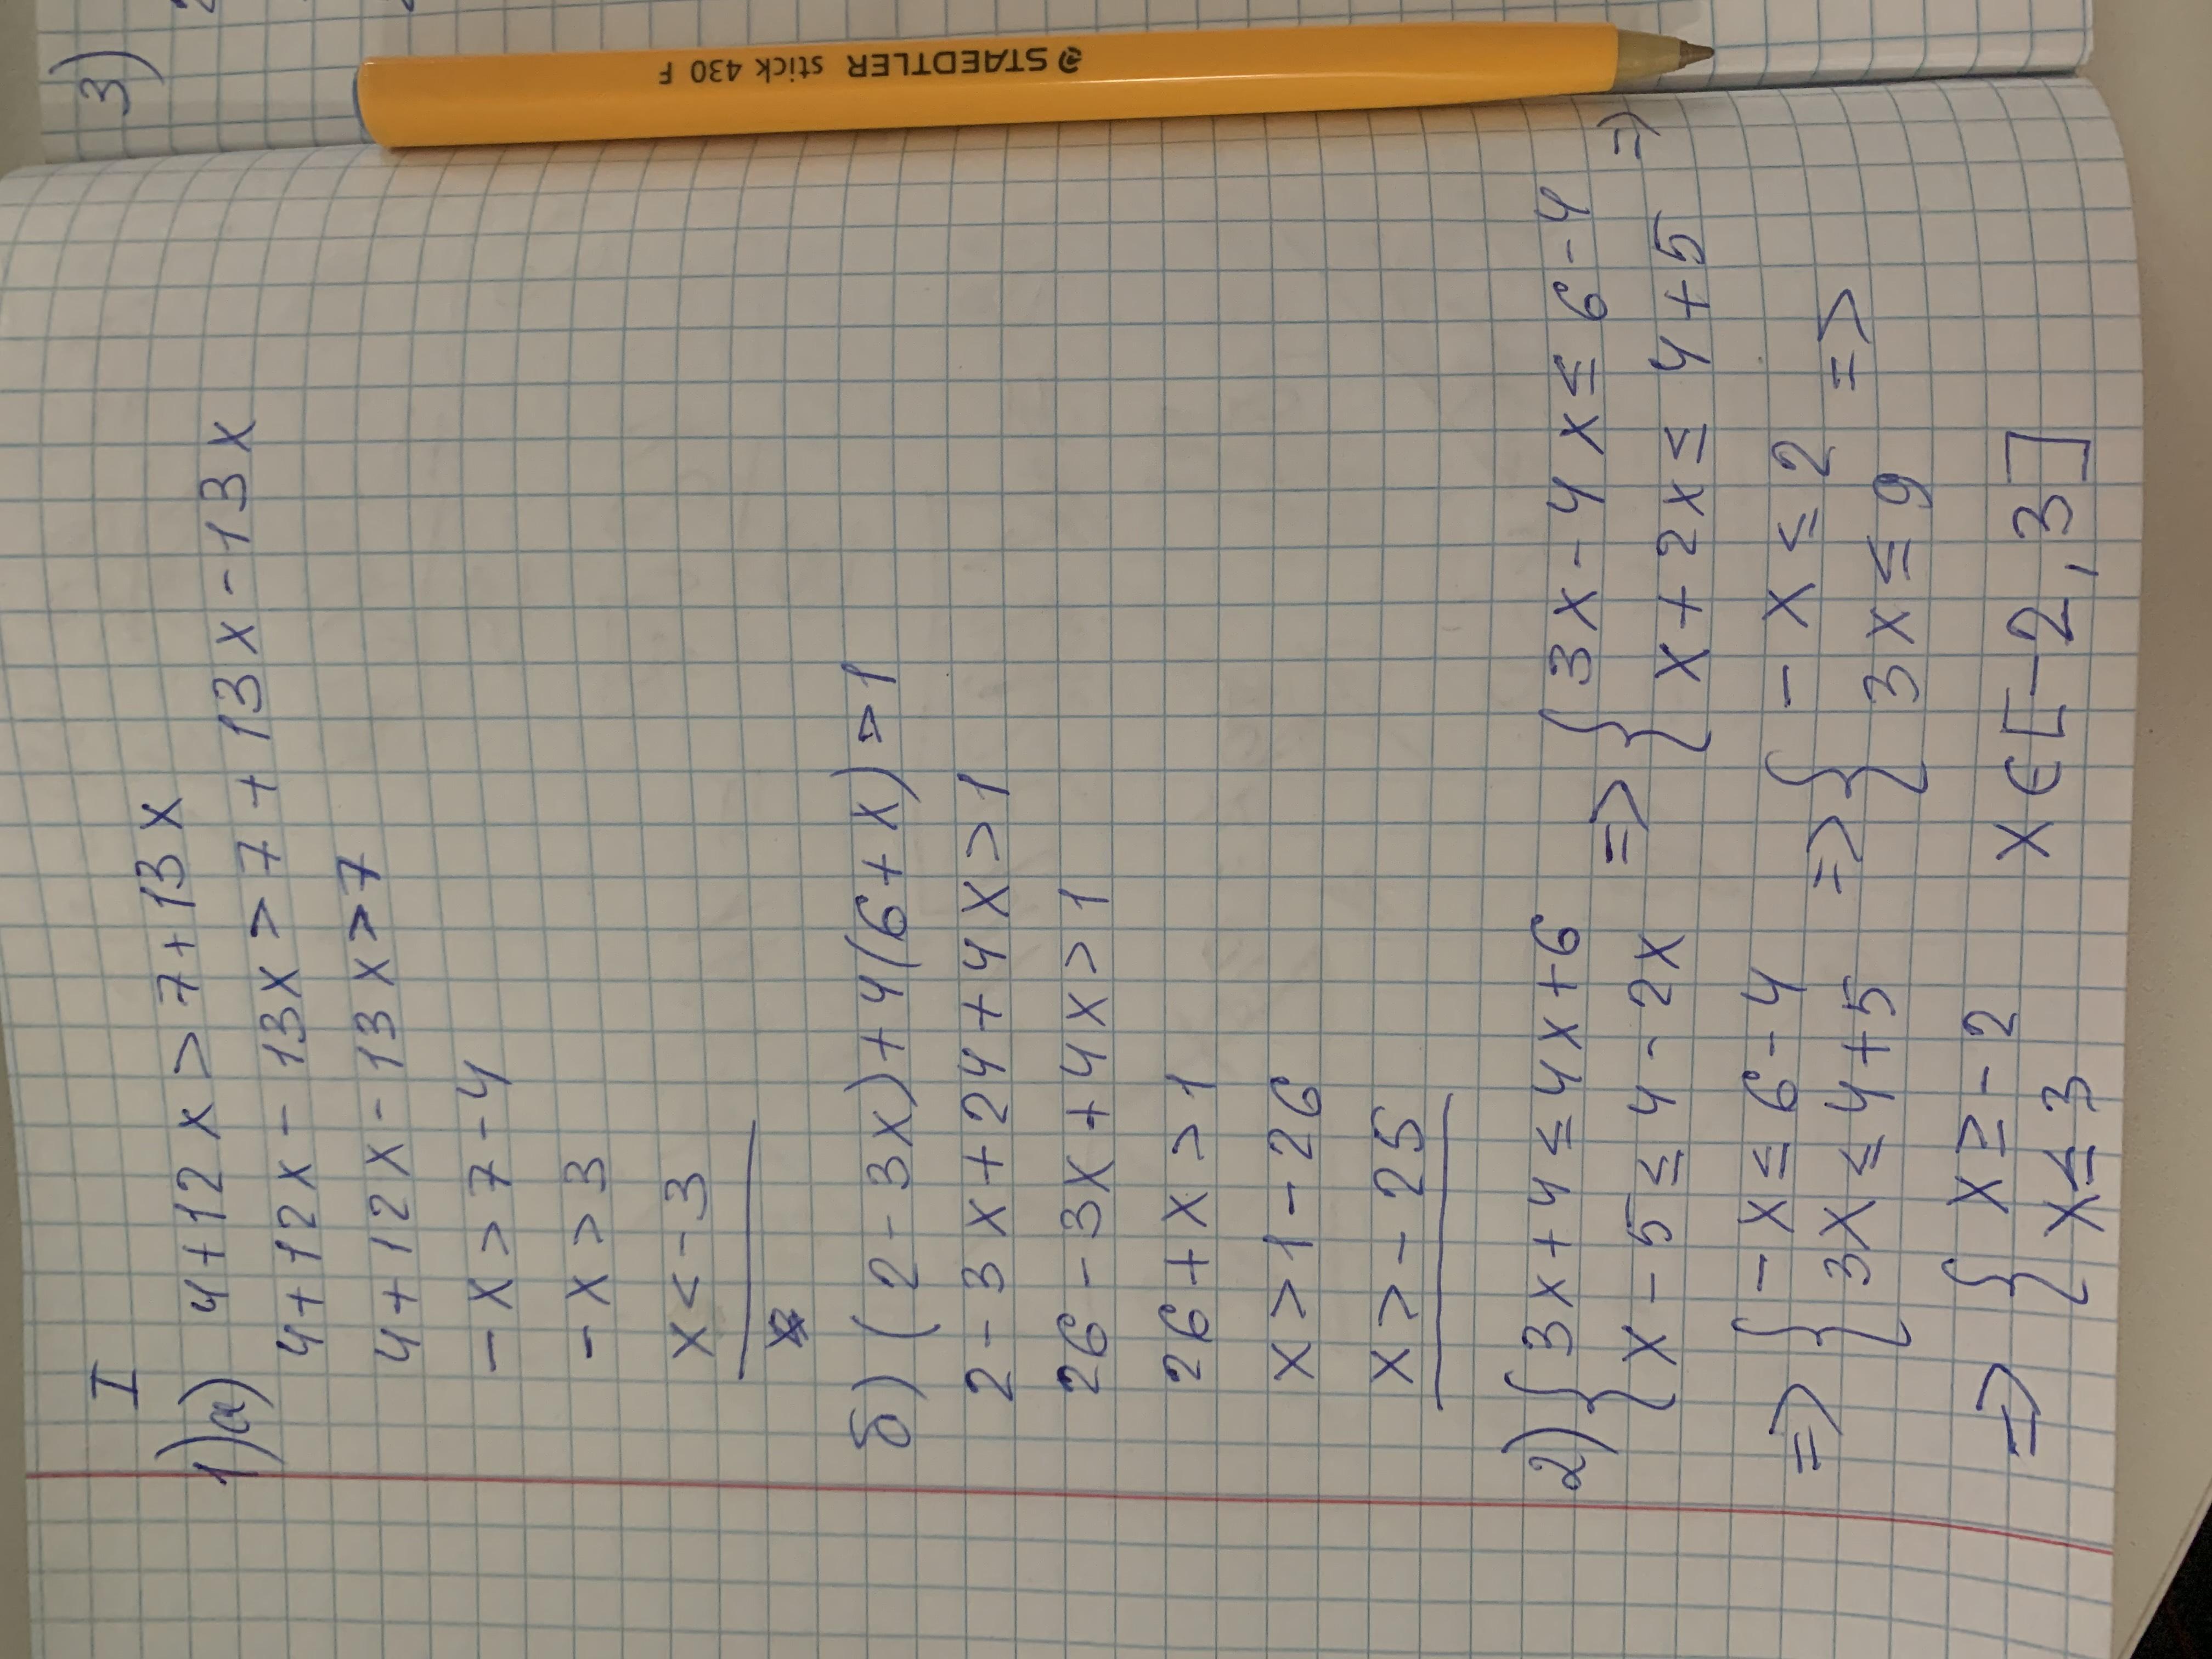 3)
STAEDTLER stick 430 F
I
1) а) 4+12x>7+13x
4+12x-13x>7+13x-13x
4+12x-13x>7
-x>7-4
-x>3
x<-3
б) (2-3x)+4(6+x)>1
2-3x+24+4x>1
26-3x+4x>1
26+x>1
x>1-26
x>-25
2) { 3x+4≤4x+6 => { 3x-4x≤6-4 =>
x-5≤4-2x x+2x≤4+5
=> { -x≤6-4 => { -x≤2 =>
3x≤4+5 3x≤9
=> { x≥-2 x∈[-2,3]
x≤3